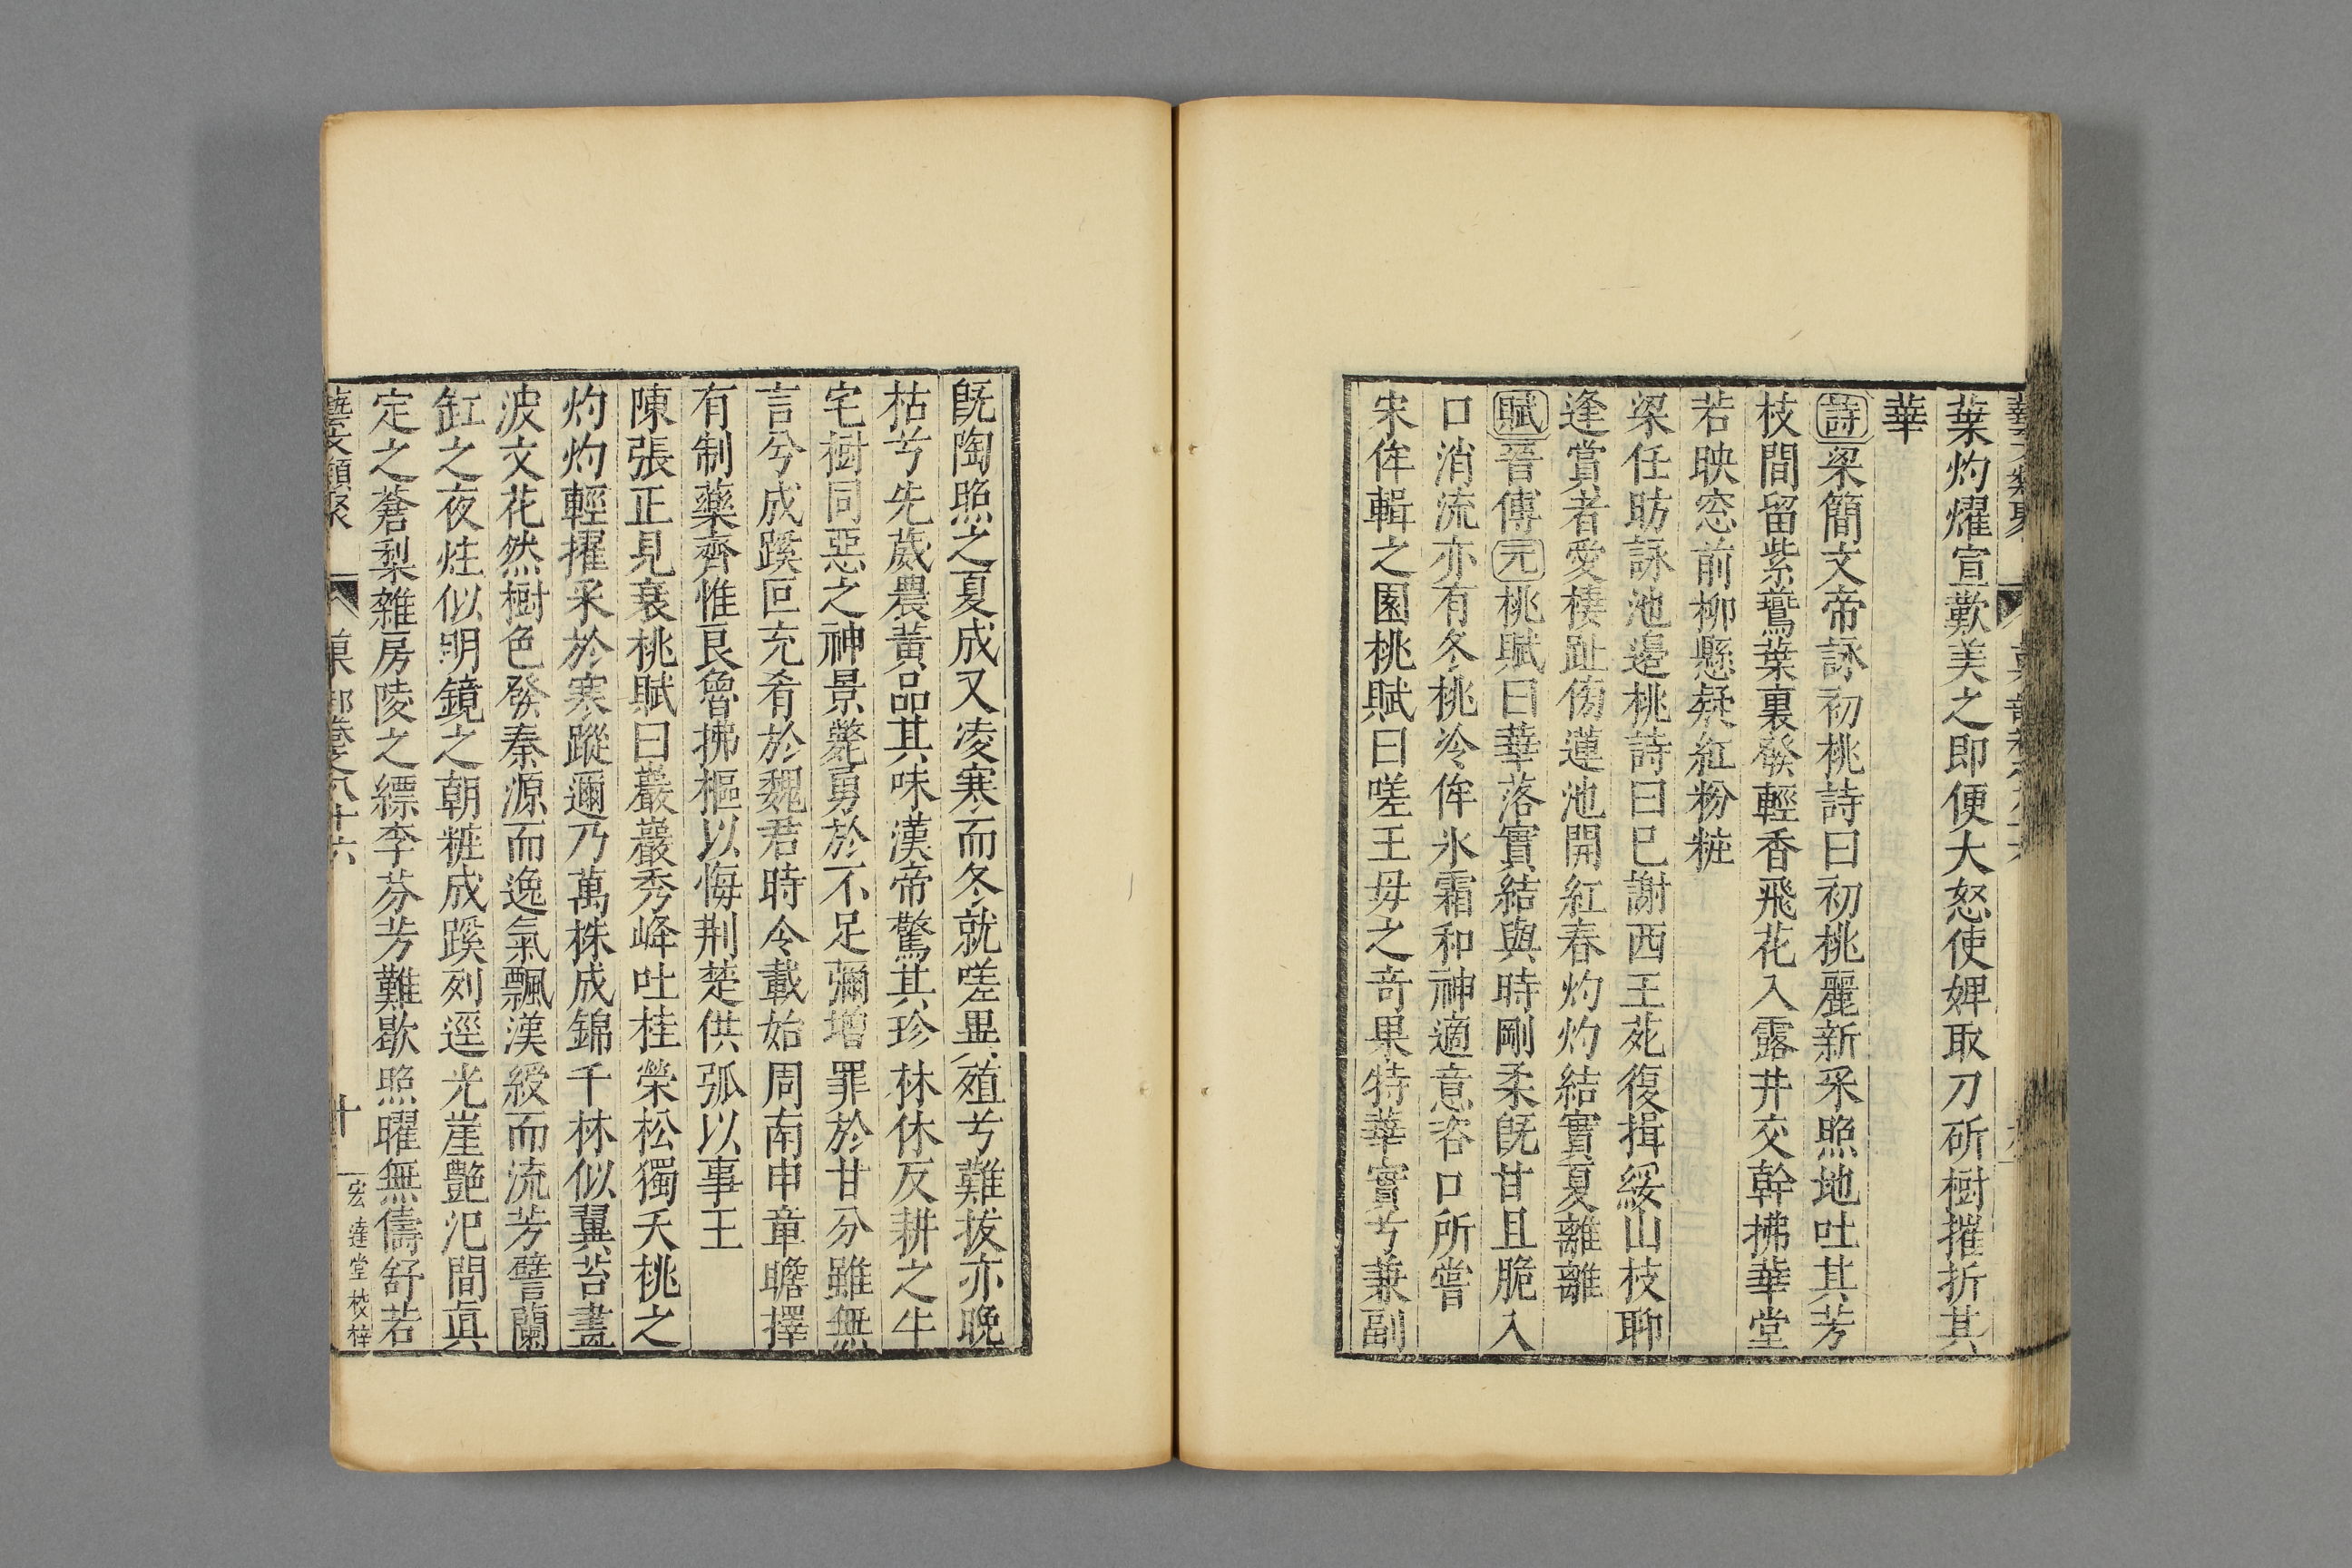 葉灼燿宣歎美之即便大怒使婢取刀斫樹摧折其
華
詩梁簡文帝詠初桃詩曰初桃麗新采照地吐其芳
枝間留紫鷰葉裏發輕香飛花入露井交幹拂華堂
若映窓前柳懸疑紅粉粧
梁任昉詠池邊桃詩曰巳謝西王苑復揖綏山枝聊
逢賞者愛棲趾傍蓮池開紅春灼灼結實夏離離
賦晉傅元桃賦曰華落實結與時剛柔旣甘且脆入
口消流亦有冬桃冷侔氷霜和神適意咨口所嘗
宋侔輯之園桃賦曰嗟王毋之奇果特華實兮兼副
旣陶煦之夏成又凌寒而冬就嗟異殖兮難拔亦晚
枯兮先葳農黃品其味漢帝驚其珍林休反耕之牛
宅樹同惡之神景斃勇於不足彌增罪於甘分雖無
言兮成蹊叵充肴於魏君時令載始周南申章瞻擇
有制藥齊惟艮魯拂樞以悔荆楚供弧以事王
陳張正見衰桃賦曰嚴巖秀峰吐桂榮松獨夭桃之
灼灼輕擢采於寒蹤邇乃萬株成錦千林似翼苔畫
波文花然樹色發秦源而逸氣飄漢綬而流芳譬蘭
缸之夜炷似明鏡之朝粧成蹊列逕光崖艷汜間眞
定之蒼梨雜房陵之縹李芬芳難歇照曜無儔舒若
藝文類聚 菓部卷之八十六 十 宏達堂校梓